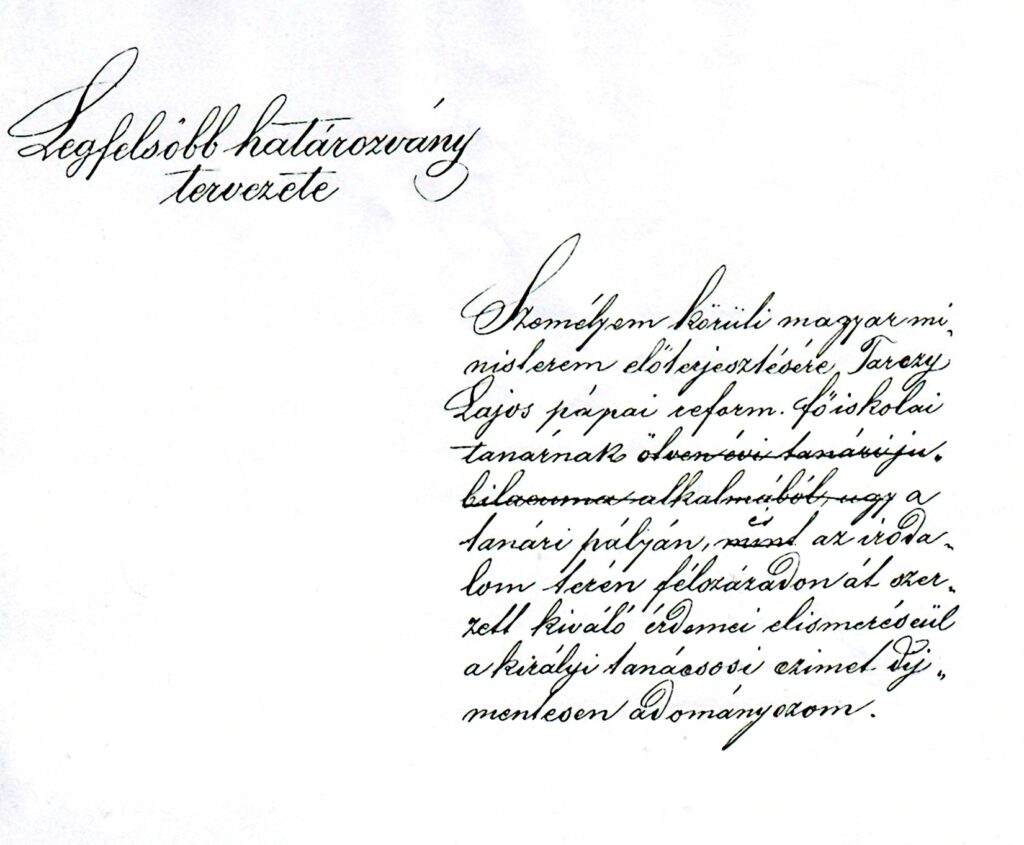 Legfelsöbb határozvány
tervezete
Személyem körüli magyar mi-
nisterem előterjesztésére, Tarczy
Lajos pápai reform. főiskolai
tanárnak ötven évi tanári ju-
bilaeuma alkalmából, ugy a
tanári pályán, mint és az iroda-
lom terén félszázadon át szer-
zett kiváló érdemei elismeréseül
a királyi tanácsosi czimet díj-
mentesen adományozom.